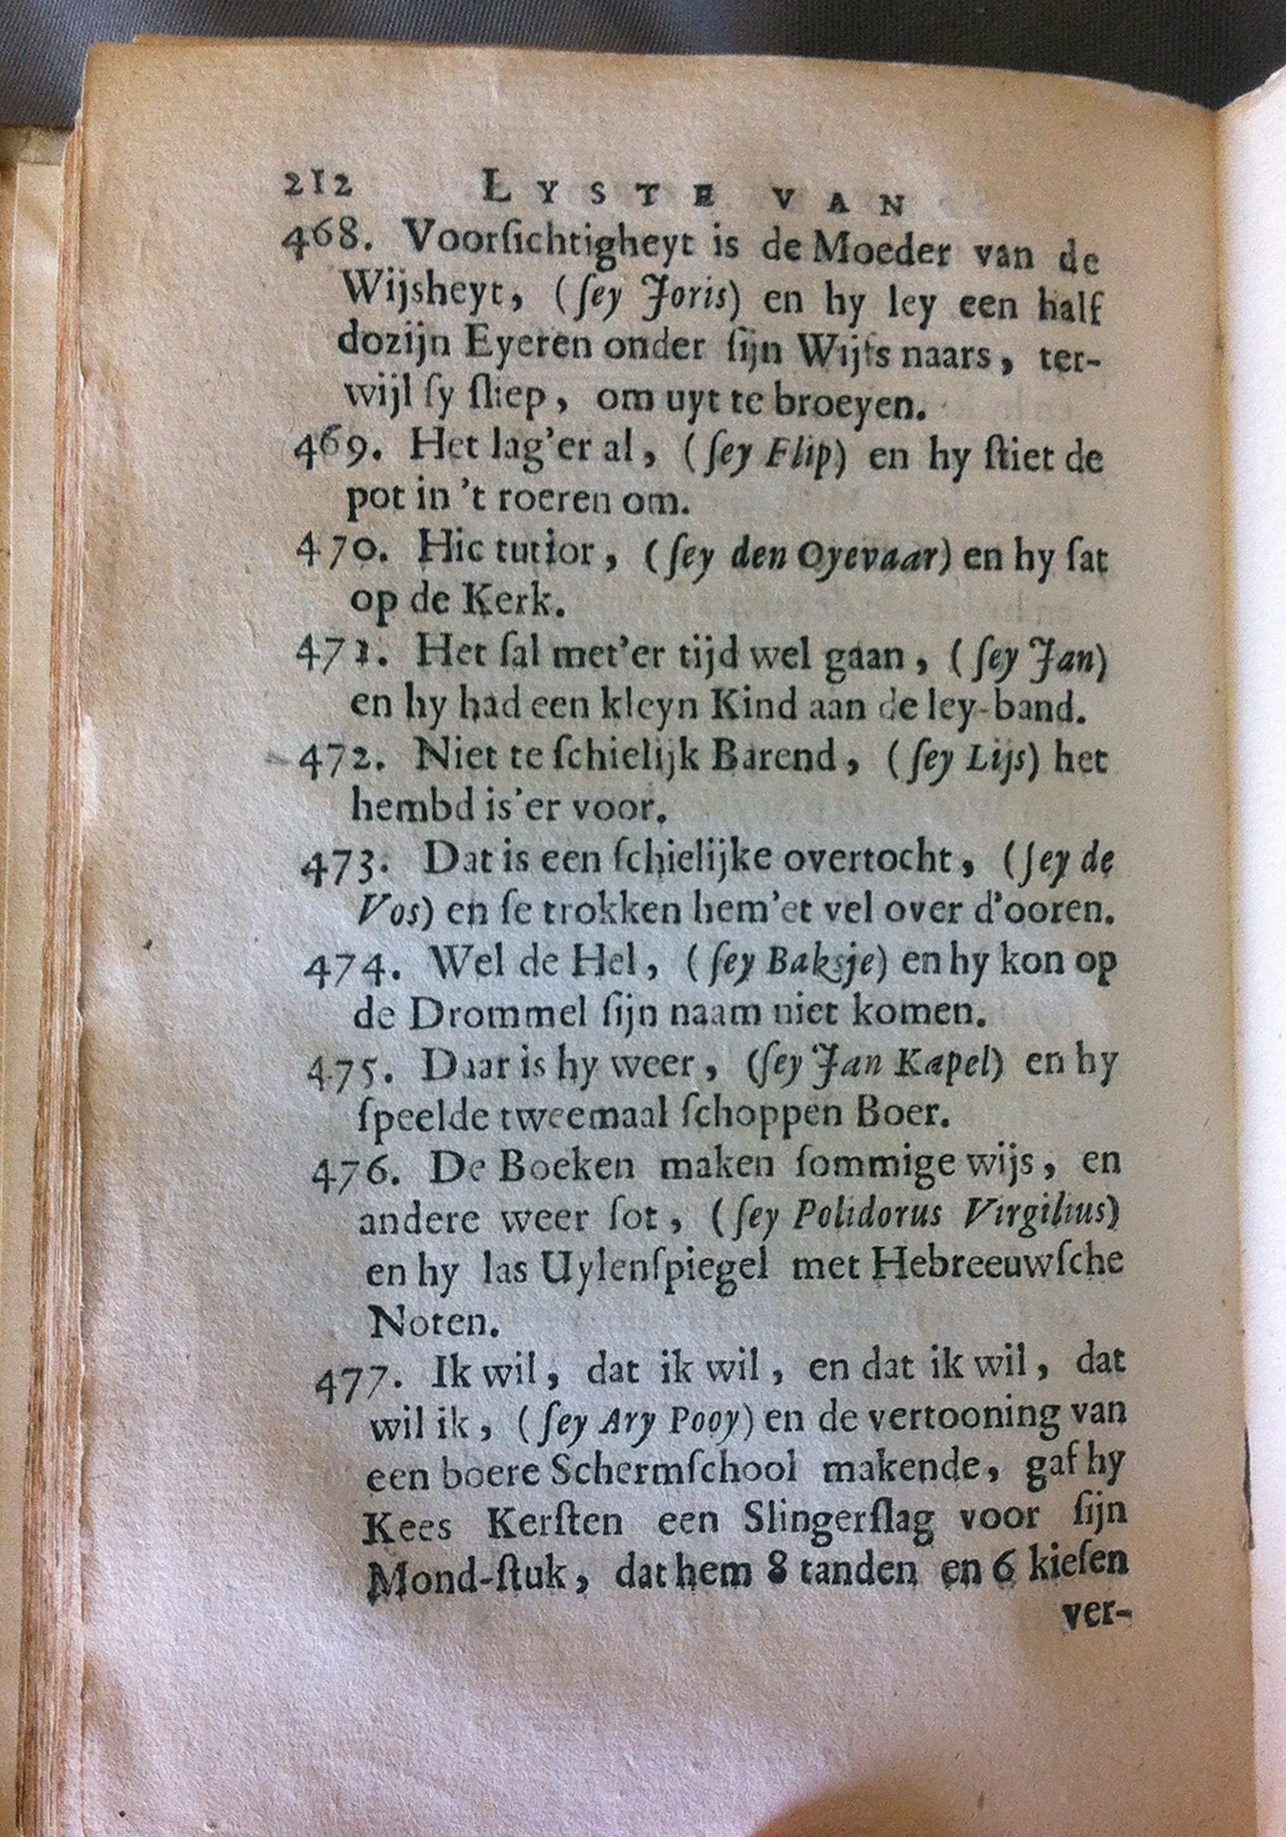 212 LYSTE VAN
468. Voorſichtigheyt is de Moeder van de
Wijsheyt, (ſey Joris) en hy ley een half
dozijn Eyeren onder ſijn Wijfs naars, ter-
wijl ſy ſliep, om uyt te broeyen.
469. Het lag'er al, (ſey Flip) en hy ſtiet de
pot in 't roeren om.
470. Hic tutior, (ſey den Oyevaar) en hy ſat
op de Kerk.
471. Het ſal met'er tijd wel gaan, (ſey Jan)
en hy had een kleyn Kind aan de ley-band.
472. Niet te ſchielijk Barend, (ſey Lijs) het
hembd is'er voor.
473. Dat is een ſchielijke overtocht, (ſey de
Vos) en ſe trokken hem'et vel over d'ooren.
474. Wel de Hel, (ſey Baksje) en hy kon op
de Drommel ſijn naam niet komen.
475. Daar is hy weer, (ſey Jan Kapel) en hy
ſpeelde tweemaal ſchoppen Boer.
476. De Boeken maken ſommige wijs, en
andere weer ſot, (ſey Polidorus Virgilius)
en hy las Uylenſpiegel met Hebreeuwſche
Noten.
477. Ik wil, dat ik wil, en dat ik wil, dat
wil ik, (ſey Ary Pooy) en de vertooning van
een boere Schermſchool makende, gaf hy
Kees Kerſten een Slingerſlag voor ſijn
Mond-ſtuk, dat hem 8 tanden en 6 kieſen
ver-